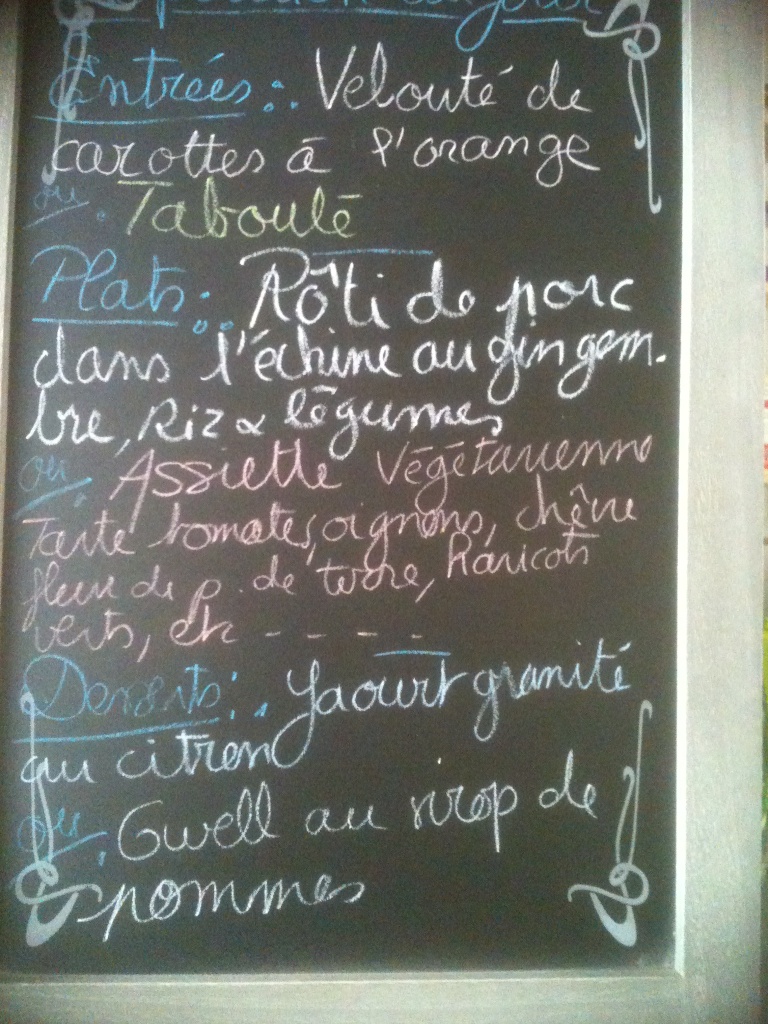 du jour
Entrées : Velouté de
carottes à l'orange
ou. Taboulé
Plats : Rôti de porc
dans l'échine au gingem-
bre, Riz & légumes
ou. Assiette Végétarienne
Tarte tomates, oignons, chèvre
fleur de p. de terre, Haricots
verts, etc - - - - -
Desserts : Yaourt granité
au citron
ou. Gwell au sirop de
pommes